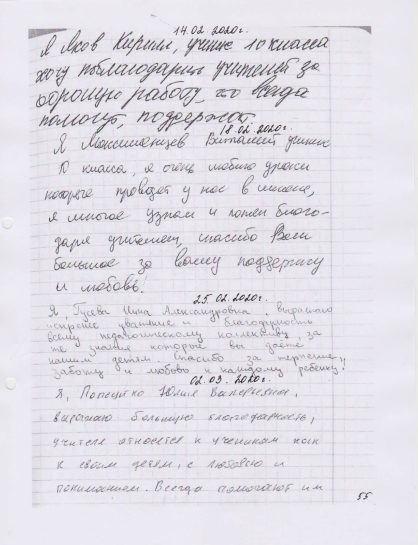 14.02.2020г.
Я Яков Кирилл, ученик 10 класса
хочу поблагодарить учителей за
хорошую работу, что всегда
помогут, поддержат.
18.02.2020г.
Я Максименцев Виталий ученик
10 класса, я очень люблю уроки
которые проводят у нас в школе,
я многое узнал и понял благо-
даря учителям, спасибо Вам
большое за вашу поддержку
и любовь.
25.02.2020г.
Я, Гусева Нина Александровна, выражаю
искренне уважение и благодарность
всему педагогическому коллективу за
те знания которые вы даёте
нашим детям. Спасибо за терпение,
заботу и любовь к каждому ребенку.
02.03.2020г.
Я, Юлия Валерьевна,
выражаю большую благодарность,
учителя относятся к ученикам как
к своим детям, с любовью и
пониманием. Всегда помогают им
55